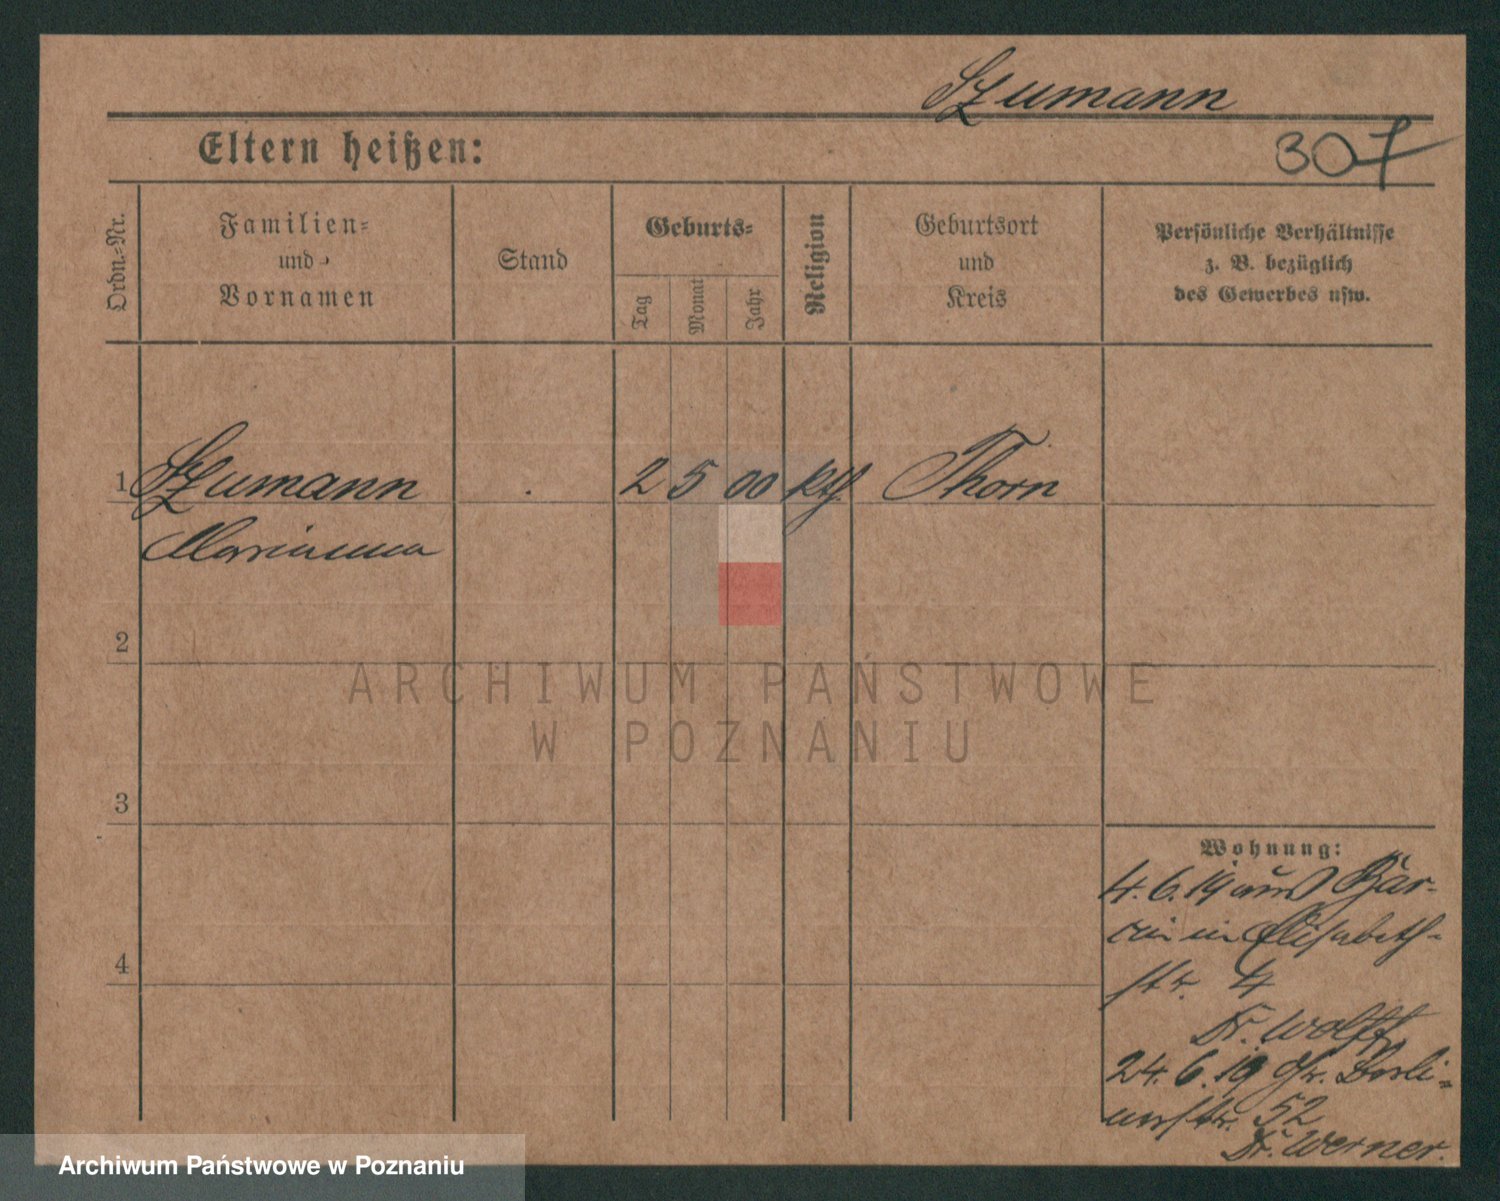 Szumann
Eltern heißen:
307
Ordn.-Nr.
Familien-
und
Vornamen
Stand
Geburts-
Tag
Monat
Jahr
Religion
Geburtsort
und
Kreis
Persönliche Verhältnisse
z. B. bezüglich
des Gewerbes usw.
1 Szumann . 2 5 00 kth. Thorn
Marianna
2
ARCHIWUM PAŃSTWOWE
W POZNANIU
3
Wohnung:
4. 6. 19 aus
in Elisabeth-
4
str. 4
Dr. Wolff
24. 6. 19 Gr. Berli-
nerstr. 52
Dr. Werner.
Archiwum Państwowe w Poznaniu